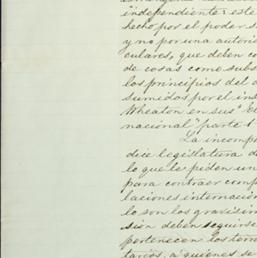 independiente i este
hecho por el poder s
y no por una autori
culares, que deben co
de cosas como subs
los principios del d
sumidos por el ins
Wheaton en sus "El
nacional" parte 1
La incomp
dice legislatura d
lo que le piden un
para contraer comp
laciones internacion
lo son los gravísim
sion deben seguirse
pertenecen los terri
tarios, a quienes se